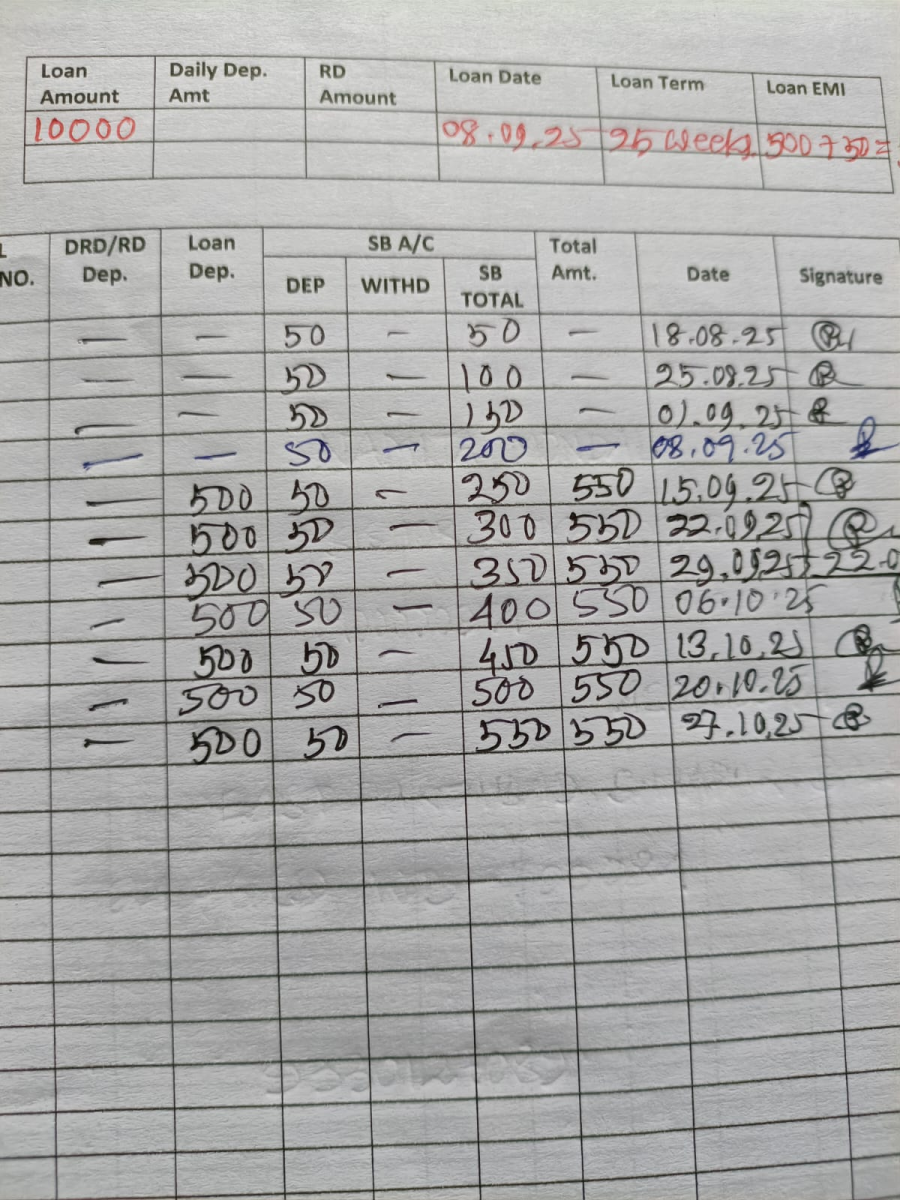 Loan Amount Daily Dep. Amt RD Amount Loan Date Loan Term Loan EMI
10000 08.09.25 25 weeks 500+50=
L NO. DRD/RD Dep. Loan Dep. SB A/C Total Amt. Date Signature
DEP WITHD SB TOTAL
— — 50 — 50 — 18.08.25
— — 50 — 100 — 25.08.25
— — 50 — 150 — 01.09.25
— — 50 — 200 — 08.09.25
— 500 50 — 250 550 15.09.25
— 500 50 — 300 550 22.09.25
— 500 50 — 350 550 29.09.25 22.0
— 500 50 — 400 550 06.10.25
— 500 50 — 450 550 13.10.25
— 500 50 — 500 550 20.10.25
— 500 50 — 550 550 27.10.25